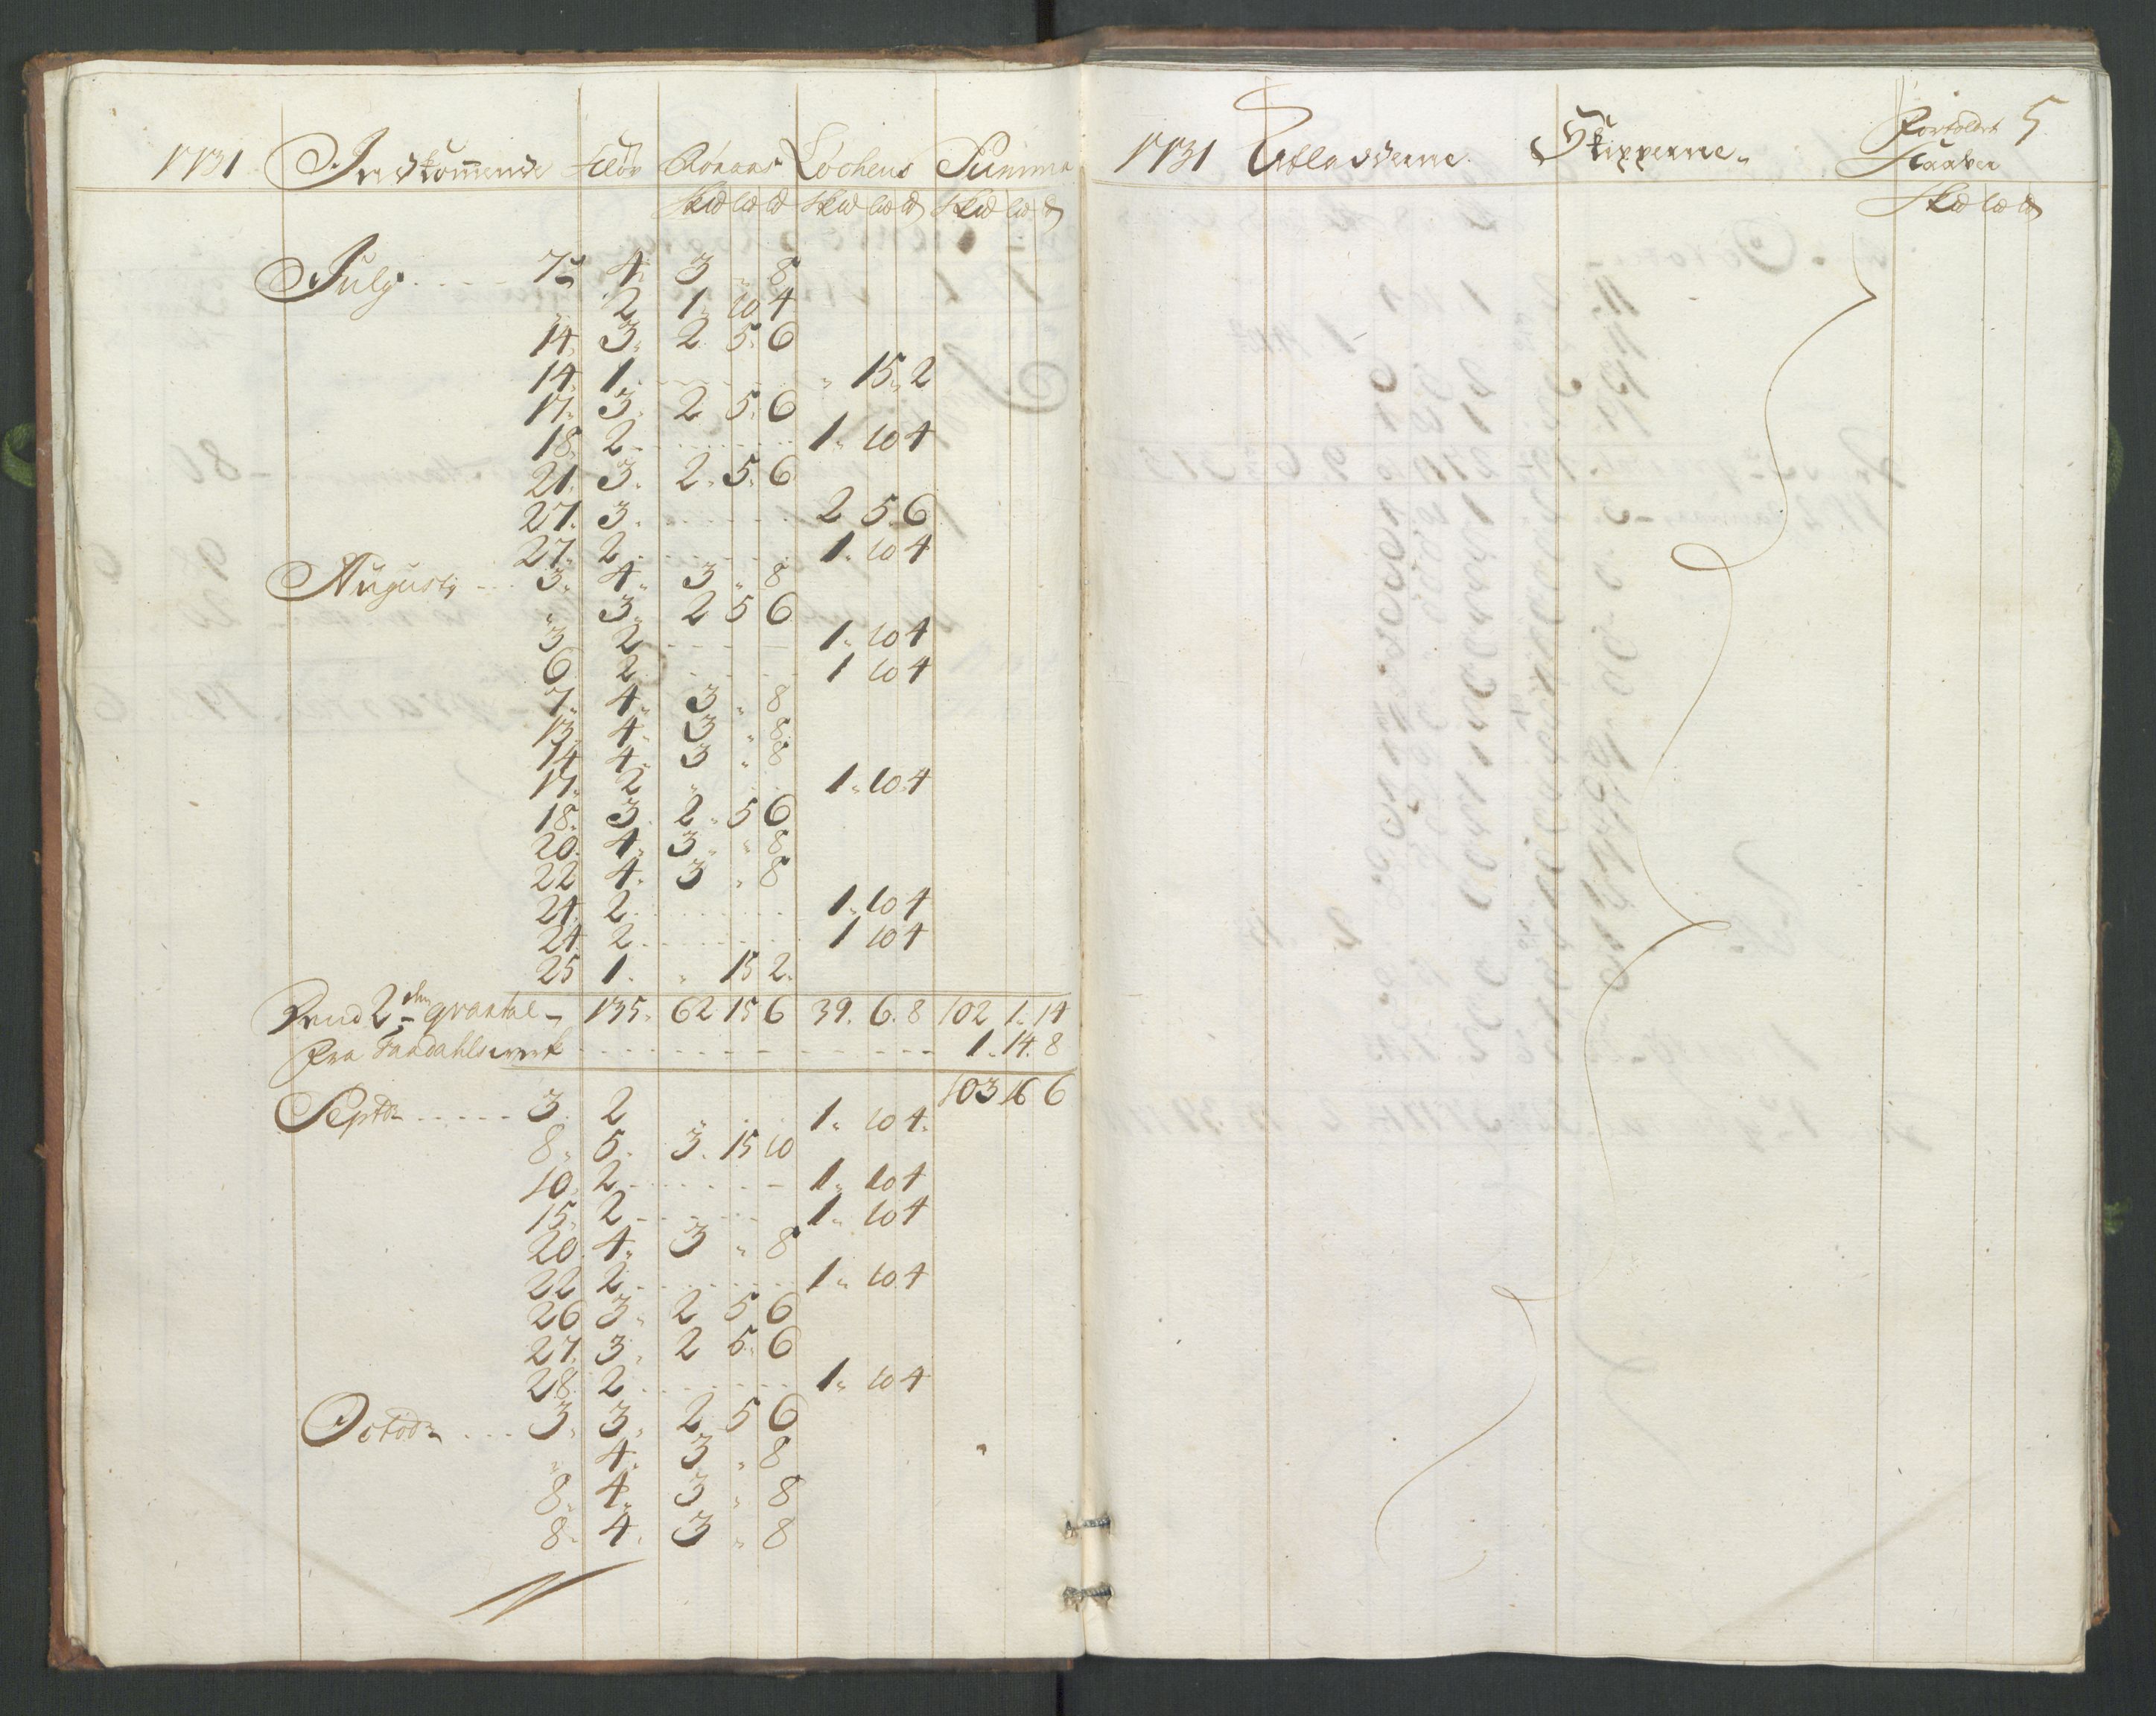 1731 Indkommende Cløv Rørans Løchens Summa
Skd Ld d Skd Ld d Skd Ld d
July 7de 4 3 " 8
2 1 10 4
14 3 2 5 6
14 1 " 15 2
17 3 2 5 6
18 2 1 10 4
21 3 2 5 6
27 3 2 5 6
27 2 1 10 4
Augusti 3 4 3 " 8
" 3 2 5 6
3 2 1 10 4
6 2 1 10 4
7 4 3 " 8
13 4 3 " 8
14 4 3 " 8
17 2 " 1 10 4
18 3 2 5 6
20 4 3 " 8
22 4 3 " 8
24 2 1 10 4
24 2 1 10 4
25 1 " 15 2
2den qvartal 135 62 15 6 39 6 8 102 1 14
Fra 1 14 8
103 16 6
Septbr 3 2 " 1 10 4
8 5 3 15 10
10 2 1 10 4
15 2 1 10 4
20 4 3 " 8
22 2 1 10 4
26 3 2 5 6
27 3 2 5 6
28 2 1 10 4
Octobr 3 3 2 5 6
" 4 3 " 8
8 4 3 " 8
8 4 3 " 8
1731 Skipperne 5
Skd Ld d